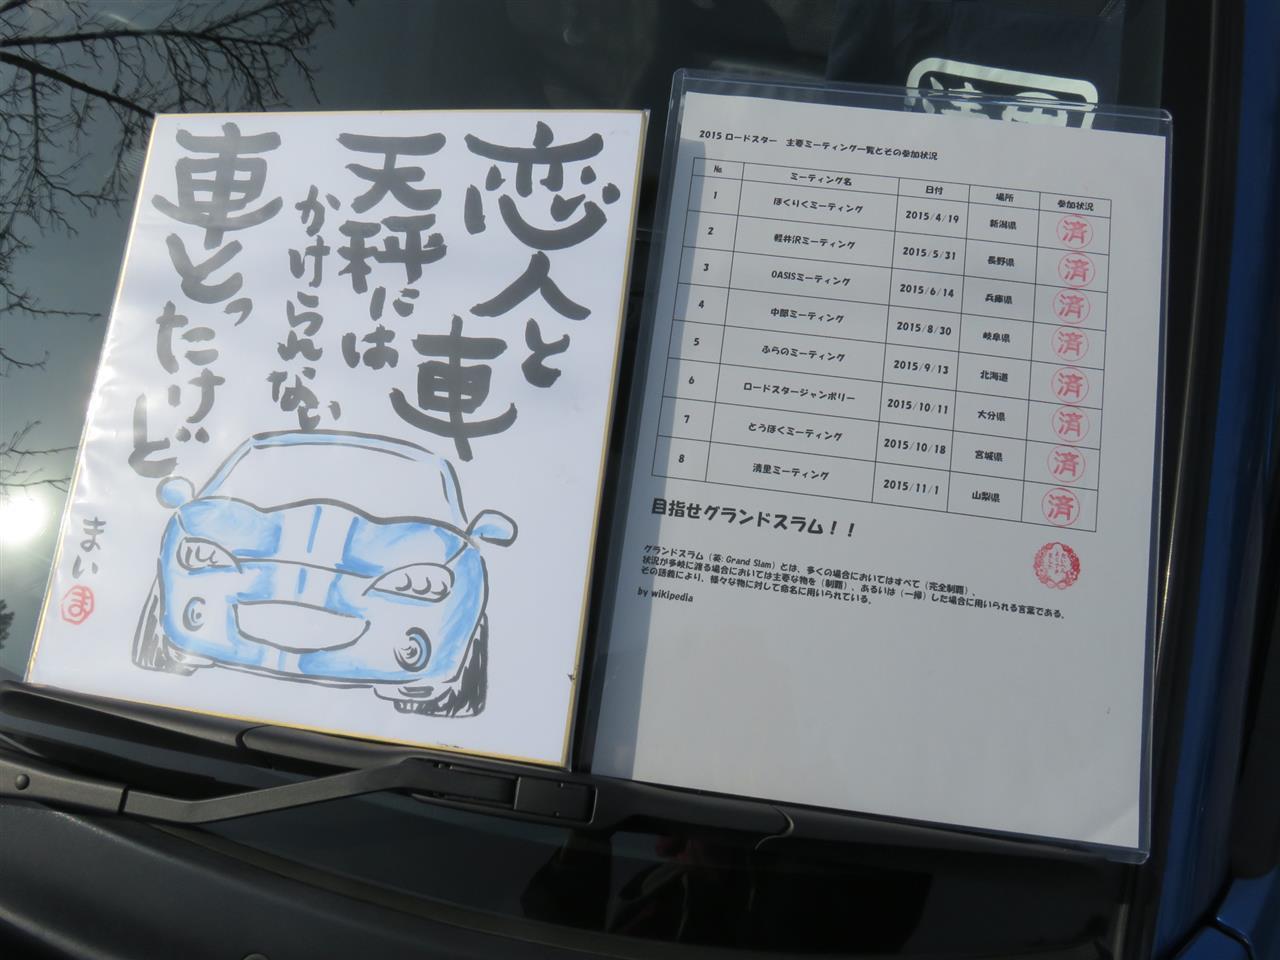 恋人と
車
天秤には
かけらんない
車とったけど。
まい
ま
2015 ロードスター　主要ミーティング一覧とその参加状況
№ ミーティング名 日付 場所 参加状況
1 ほくりくミーティング 2015/4/19 新潟県 済
2 軽井沢ミーティング 2015/5/31 長野県 済
3 OASISミーティング 2015/6/14 兵庫県 済
4 中部ミーティング 2015/8/30 岐阜県 済
5 ふらのミーティング 2015/9/13 北海道 済
6 ロードスタージャンボリー 2015/10/11 大分県 済
7 とうほくミーティング 2015/10/18 宮城県 済
8 清里ミーティング 2015/11/1 山梨県 済
目指せグランドスラム！！
グランドスラム（英: Grand Slam）とは、多くの場合においてはすべて（完全制覇）、
状況が多岐に渡る場合においては主要な物を（制覇）、あるいは（一掃）した場合に用いられる言葉である。
その語義により、様々な物に対して命名に用いられている。
by wikipedia